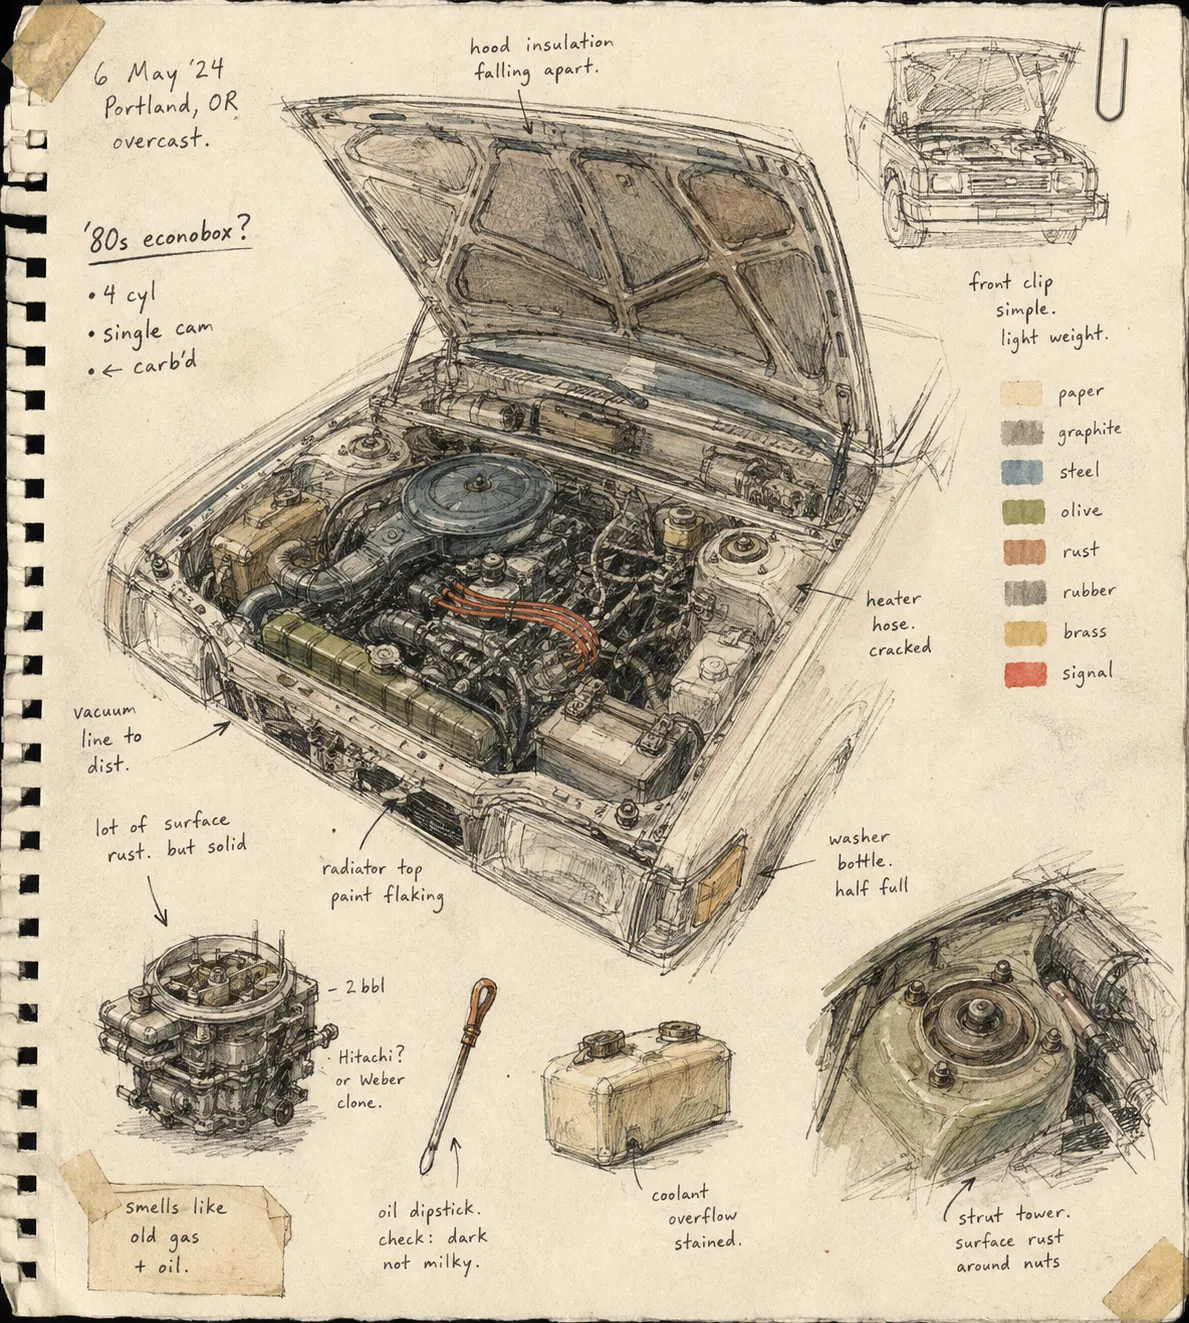 6 May '24
Portland, OR
overcast.
hood insulation
falling apart.
'80s econobox?
• 4 cyl
• single cam
• ← carb'd
front clip
simple.
light weight.
paper
graphite
steel
olive
rust
rubber
brass
signal
heater
hose.
cracked
vacuum
line to
dist.
lot of surface
rust. but solid
radiator top
paint flaking
washer
bottle.
half full
- 2 bbl
Hitachi?
or Weber
clone.
smells like
old gas
+ oil.
oil dipstick.
check: dark
not milky.
coolant
overflow
stained.
strut tower.
surface rust
around nuts